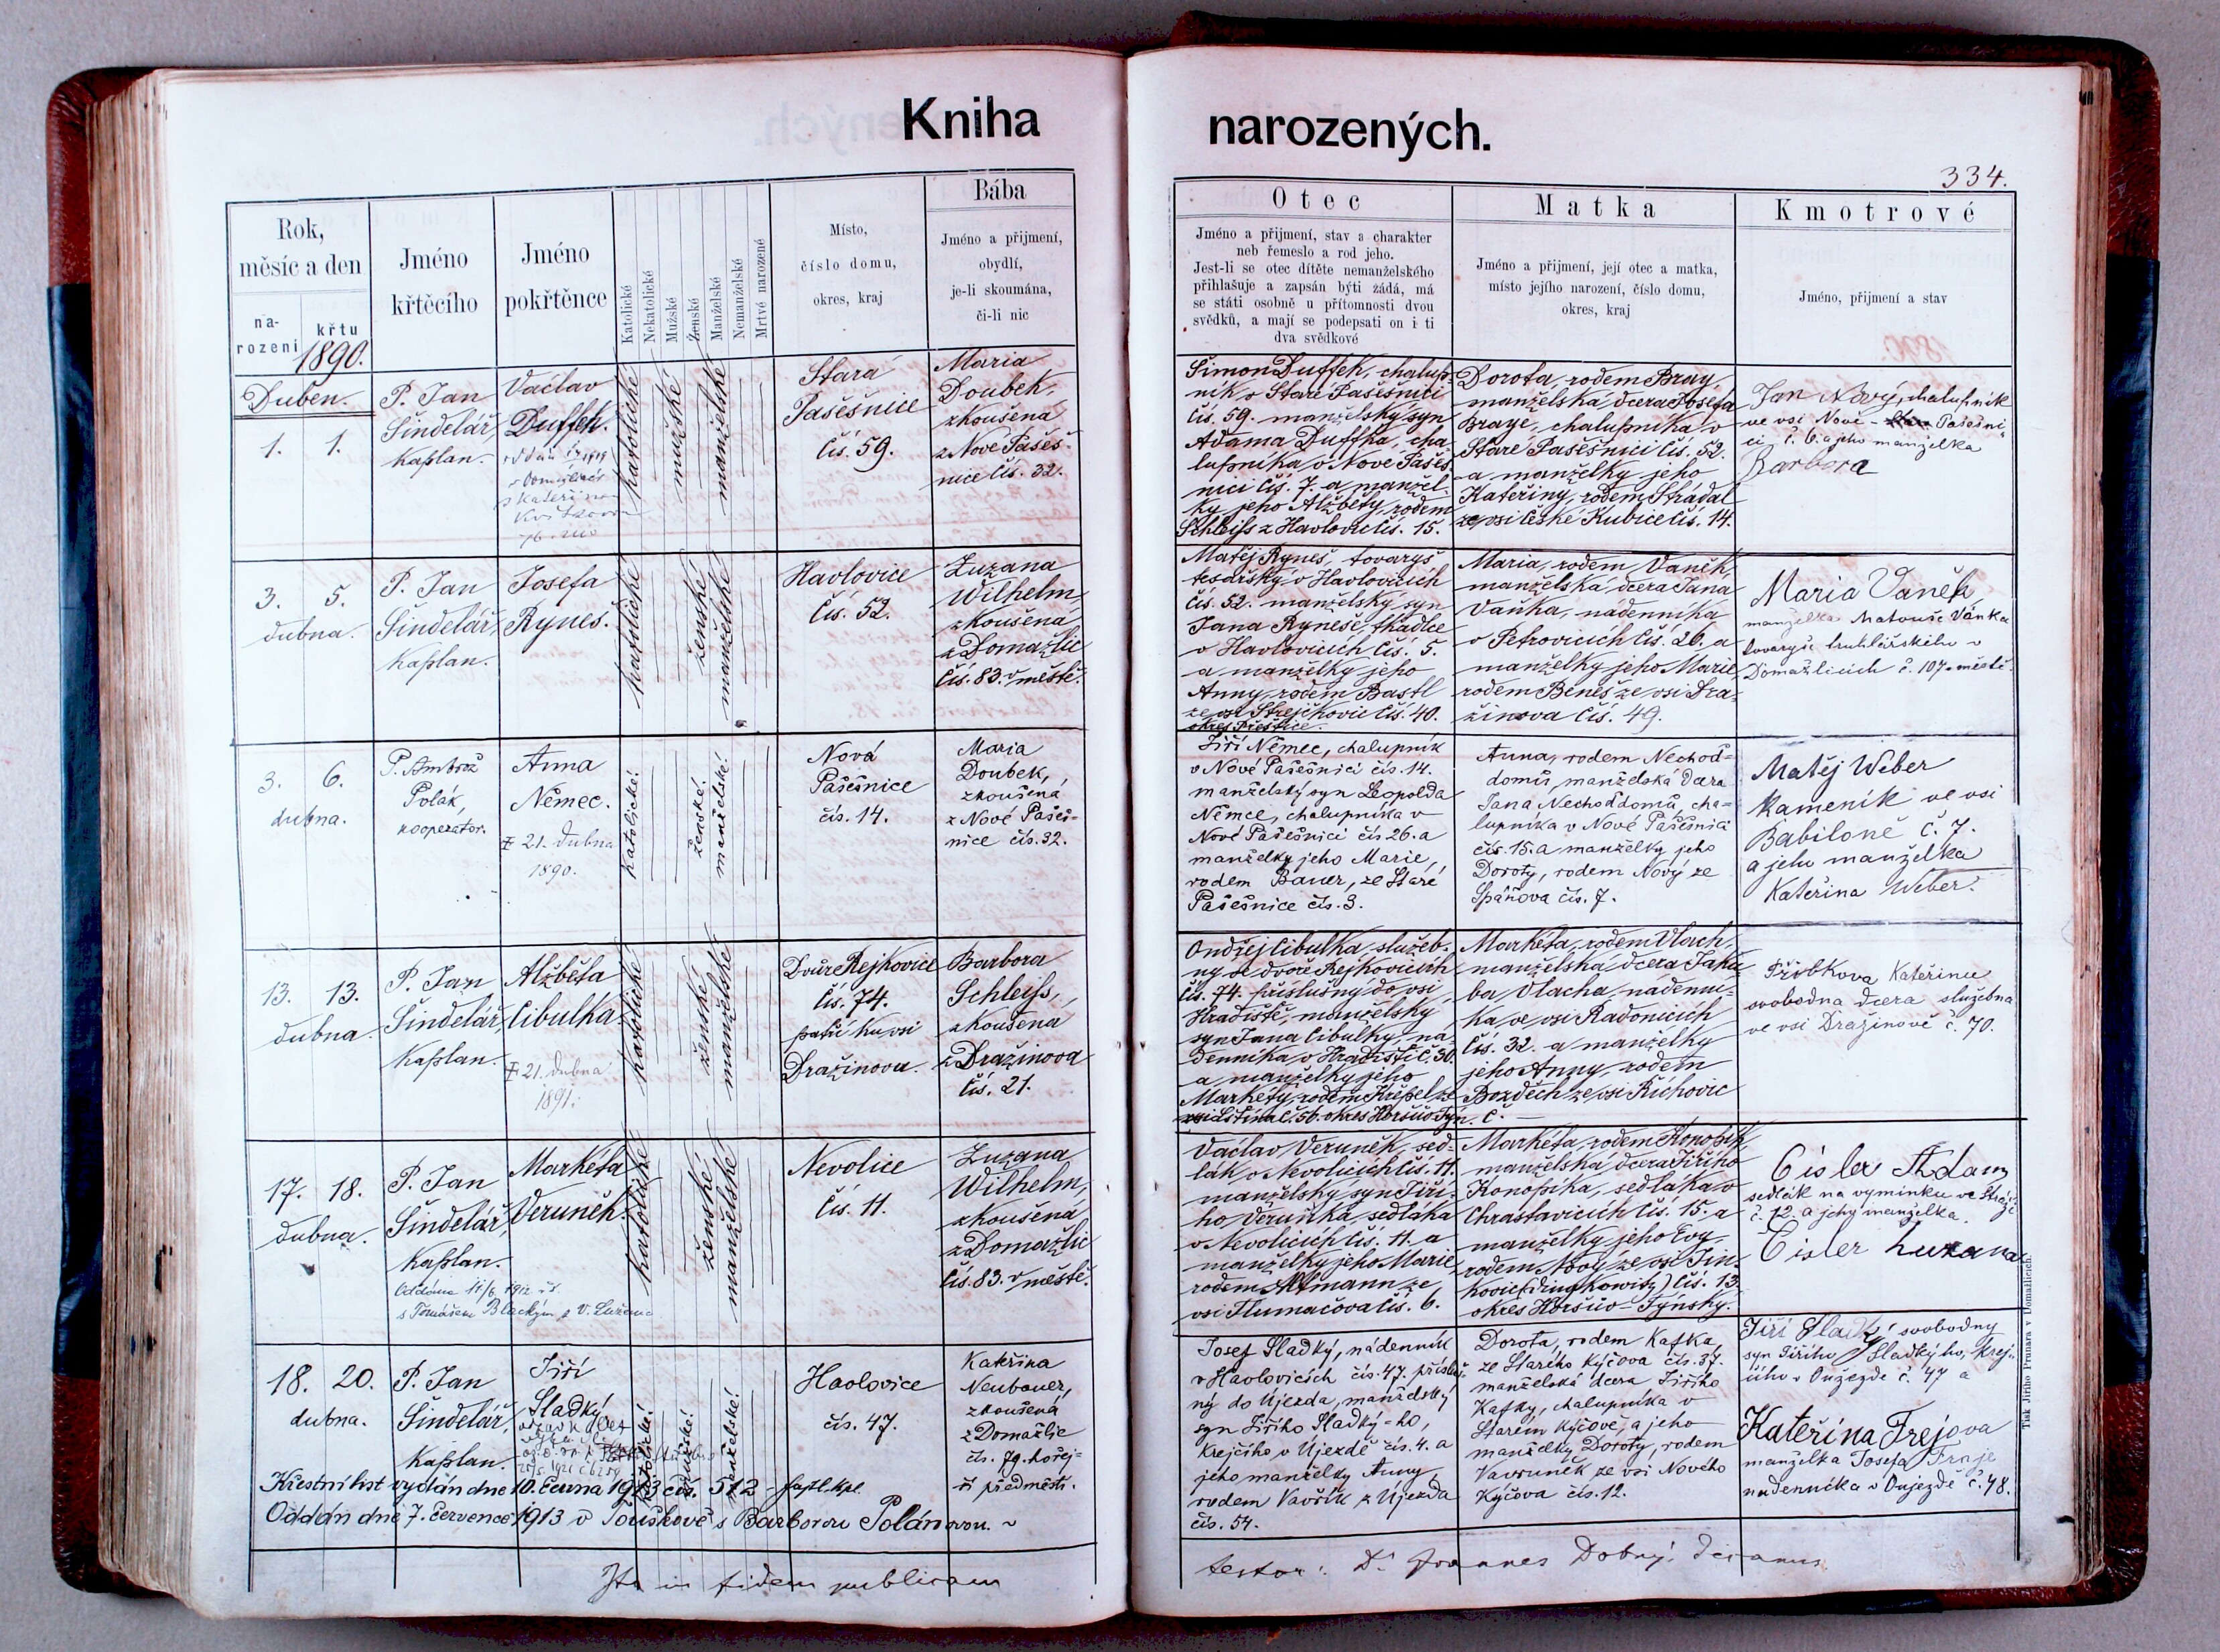 Kniha
narozených.
334.
Rok,
měsíc a den
na-
rození
křtu
1890.
Jméno
křtěcího
Jméno
pokřtěnce
Katolické
Nekatolické
Mužské
Ženské
Manželské
Nemanželské
Mrtvé narozené
Místo,
číslo domu,
okres, kraj
Bába
Jméno a přijmení,
obydlí,
je-li skoumána,
či-li nic
Otec
Jméno a přijmení, stav a charakter
neb řemeslo a rod jeho.
Jest-li se otec dítěte nemanželského
přihlašuje a zapsán býti žádá, má
se státi osobně u přítomnosti dvou
svědků, a mají se podepsati on i ti
dva svědkové
Matka
Jméno a přijmení, její otec a matka,
místo jejího narození, číslo domu,
okres, kraj
Kmotrové
Jméno, přijmení a stav
Duben.
1. 1.
P. Jan
Šindelář,
kaplan.
Václav
Duffek.
katolické
mužské
manželské
Stará
Pašešnice
čís. 59.
Maria
Doubek,
zkoušená
z Nové Pašeš-
nice čís. 32.
Šimon Duffek, chalup-
ník v Staré Pašešnici
čís. 59. manželský syn
Adama Duffka, cha-
lupníka v Nové Pašeš
nici čís. 7. a manžel-
ky jeho Alžběty, rodem
Schleiss z Havlovic čís. 15.
Dorota, rodem Bray,
manželská dcera Josefa
Braye, chalupníka v
Staré Pašešnici čís. 52.
a manželky jeho
Kateřiny, rodem Strádal
ze vsi České Kubice čís. 14.
Jan Nový, chalupník
ve vsi Nové - Pašešni
ci č. 6. a jeho manželka
Barbora
3. 5.
dubna.
P. Jan
Šindelář,
kaplan.
Josefa
Ryneš.
katolické
ženské
manželské
Havlovice
čís. 52.
Zuzana
Wilhelm,
zkoušená
z Domažlic
čís. 83. v městě.
Matěj Ryneš, tovaryš
tesařský v Havlovicích
čís. 52. manželský syn
Jana Ryneše, tkadlce
v Havlovicích čís. 5.
a manželky jeho
Anny, rodem Bastl
ze vsi Strejčkovic čís. 40.
okres Přeštice.
Maria, rodem Vaněk,
manželská dcera Jana
Vaňka, nádenníka
v Petrovicích čís. 26. a
manželky jeho Marie,
rodem Beneš ze vsi Dra-
žinova čís. 49.
Maria Vaněk,
manželka Matouše Vaňka
tovaryše truhlářského v
Domažlicích č. 107 městě
3. 6.
dubna.
P. Ambrož
Polák,
kooperator.
Anna
Němec.
21. dubna
1890.
katolické!
ženské!
manželské!
Nová
Pašešnice
čís. 14.
Maria
Doubek,
zkoušená
z Nové Pašeš-
nice čís. 32.
Jiří Němec, chalupník
v Nové Pašešnici čís. 14.
manželský syn Leopolda
Němce, chalupníka v
Nové Pašešnici čís 26. a
manželky jeho Marie,
rodem Bauer, ze Staré
Pašešnice čís. 3.
Anna, rodem Nechoď-
domů, manželská dcera
Jana Nechoďdomů, cha-
lupníka v Nové Pašešnici
čís. 15. a manželky jeho
Doroty, rodem Nový ze
Spáňova čís. 7.
Matěj Weber
Kameník ve vsi
Babiloně č. 7.
a jeho manželka
Kateřina Weber.
13. 13.
dubna.
P. Jan
Šindelář,
kaplan.
Alžběta
Cibulka
21. dubna
1891.
katolické
ženské
manželské
Dvůr Rejkovice
čís. 74.
patří ku vsi
Dražinovu.
Barbora
Schleiss,
zkoušená
z Dražinova
čís. 21.
Ondřej Cibulka, služeb-
ný ve dvoře Rejkovicích
čís. 74. příslušný do vsi
Hradiště, manželský
syn Jana Cibulky, ná-
denníka v Hradišti č. 30.
a manželky jeho
Markéty, rodem Křepel ze
vsi Štítina č. 50. okres Horšův Týn.
Markéta, rodem Vlach,
manželská dcera Jaku
ba Vlacha, nádenní-
ka ve vsi Radonicích
čís. 32. a manželky
jeho Anny, rodem
Bozděch ze vsi Řichovic
č. —
Kateřina
svobodna dcera služebna
ve vsi Dražinově č. 70.
17. 18.
dubna.
P. Jan
Šindelář,
kaplan.
Oddána 11/6 1912
s Tomášem Blackým z V. Luženic
Markéta
Veruněk.
katolické
ženské
manželské
Nevolice
čís. 11.
Zuzana
Wilhelm,
zkoušená
z Domažlic
čís. 83. v městě.
Václav Veruněk, sed-
lák v Nevolicích čís. 11.
manželský syn Jiří-
ho Veruňka, sedláka
v Nevolicích čís. 11. a
manželky jeho Marie
rodem Altmann ze
vsi Tlumačova čís. 6.
Markéta, rodem Konopík,
manželská dcera Jiřího
Konopíka, sedláka v
Chrastavicích čís. 15. a
manželky jeho Evy,
rodem Nový ze vsi Jin-
kovic (Dingkowitz) čís. 13.
okres Horšův-Týnský.
Cisler Adam
sedlák na vyminku ve
č. 12. a jeho manželka.
Cisler Zuzana
18. 20.
dubna.
P. Jan
Šindelář,
kaplan.
Jiří
Sladký
katolické!
mužské!
manželské!
Havlovice
čís. 47.
Kateřina
Neubauer,
zkoušená
z Domažlic
čís. 79. hořej-
ší předměstí.
Josef Sladký, nádenník
v Havlovicích čís. 47. přísluš-
ný do Újezda, manželský
syn Jiřího Sladký-ho,
krejčího v Újezdě čís. 4. a
jeho manželky Anny,
rodem Vavřík z Újezda
čís. 54.
Dorota, rodem Kafka
ze Starého Kýčova čís. 37.
manželská dcera Jiřího
Kafky, chalupníka v
Starém Kýčově, a jeho
manželky Doroty, rodem
Vavruněk ze vsi Nového
Kýčova čís. 12.
Jiří Sladký svobodny
syn Jiřího Sladkýho, krej-
čího v Oujezdě č. 47 a
Kateřina Frejova
manželka Josefa Fraje
nadenníka v Oujezdě č. 48.
Křestní list vydán dne 10. června 1913 čís. 512
Oddán dne 7. července 1913 v Touškově s Barborou Polánovou.
Ita in fidem publicam
testor: Dr Joannes Dobrý, decanus
Tisk Jiřího Prunara v Domažlicích.